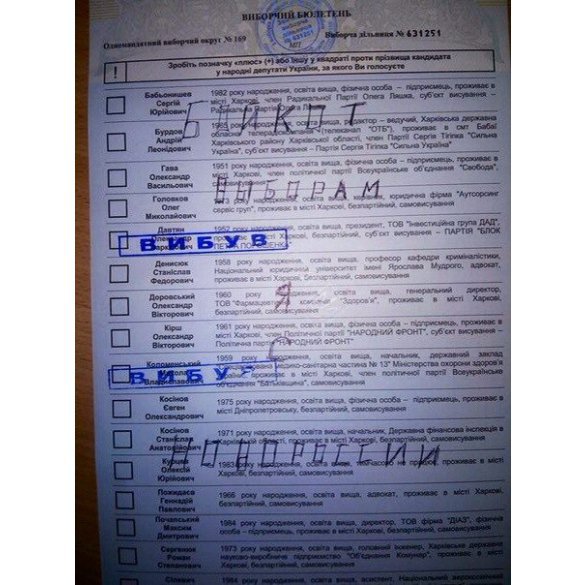 ВИБОРЧИЙ БЮЛЕТЕНЬ
Одномандатний виборчий округ № 169
Виборча дільниця № 631251
МП
! Зробіть позначку «плюс» (+) або іншу у квадраті проти прізвища кандидата
у народні депутати України, за якого Ви голосуєте
Бабьонишев Сергій Юрійович
1982 року народження, освіта вища, фізична особа – підприємець, проживає
в місті Харкові, член Радикальної Партії Олега Ляшка, суб'єкт висування –
БОЙКОТ
Бурдов Андрій Леонідович
редактор – ведучий, Харківська державна
обласна телерадіокомпанія (телеканал "ОТБ"), проживає в смт Бабаї
Харківського району Харківської області, член Партії Сергія Тігіпка "Сильна
Україна", суб'єкт висування – Партія Сергія Тігіпка "Сильна Україна"
Гава Олександр Васильович
1951 року народження, освіта вища, фізична особа – підприємець, проживає
в місті Харкові, член політичної партії Всеукраїнське об'єднання "Свобода",
ВЫБОРАМ
Головков Олег Миколайович
юридична фірма "Аутсорсинг
сервіс груп", проживає в місті Харкові, безпартійний, самовисування
Давтян
1952 року народження, освіта вища, президент, ТОВ "Інвестиційна група ДАД",
проживає в місті Харкові, безпартійний, суб'єкт висування – ПАРТІЯ "БЛОК
ВИБУВ
Денисюк Станіслав Федорович
1958 року народження, освіта вища, професор кафедри криміналістики,
Національний юридичний університет імені Ярослава Мудрого, адвокат,
проживає в місті Харкові, безпартійний, самовисування
Доровський Олександр Вікторович
1960 року народження, освіта вища, генеральний директор,
ТОВ "Фармацевтична компанія "Здоров'я", проживає в місті Харкові,
безпартійний, самовисування
Я
Кірш Олександр Вікторович
1961 року народження, освіта вища, фізична особа – підприємець, проживає в
місті Харкові, член Політичної партії "НАРОДНИЙ ФРОНТ", суб'єкт висування –
Політична партія "НАРОДНИЙ ФРОНТ"
С
Коломенський
1959 року народження, освіта вища, начальник, державний заклад
медико-санітарна частина № 13" Міністерства охорони здоров'я
проживає в місті Харкові, член політичної партії Всеукраїнське
об'єднання "Батьківщина", самовисування
ВИБУВ
Косінов Євген Олександрович
1975 року народження, освіта вища, фізична особа – підприємець, проживає в
місті Дніпропетровську, безпартійний, самовисування
Косінов Станіслав Анатолійович
1971 року народження, освіта вища, начальник, Державна фінансова інспекція в
Харківській області, проживає в місті Харкові, безпартійний, самовисування
НОВОРОССИИ
Курцев Олексій Юрійович
1983 року народження, освіта вища, тимчасово не працює, проживає в місті
Харкові, безпартійний, самовисування
Пожидаєв Геннадій Павлович
1966 року народження, освіта вища, адвокат, проживає в місті Харкові,
безпартійний, самовисування
Почапський Максим Дмитрович
1984 року народження, освіта вища, директор, ТОВ фірма "ДІАЗ", проживає в
місті Харкові, безпартійний, самовисування
Сергієнко Роман Степанович
1973 року народження, освіта вища, головний інженер, Харківське державне
науково-виробниче підприємство "Об'єднання Комунар", проживає в місті
Харкові, безпартійний, самовисування